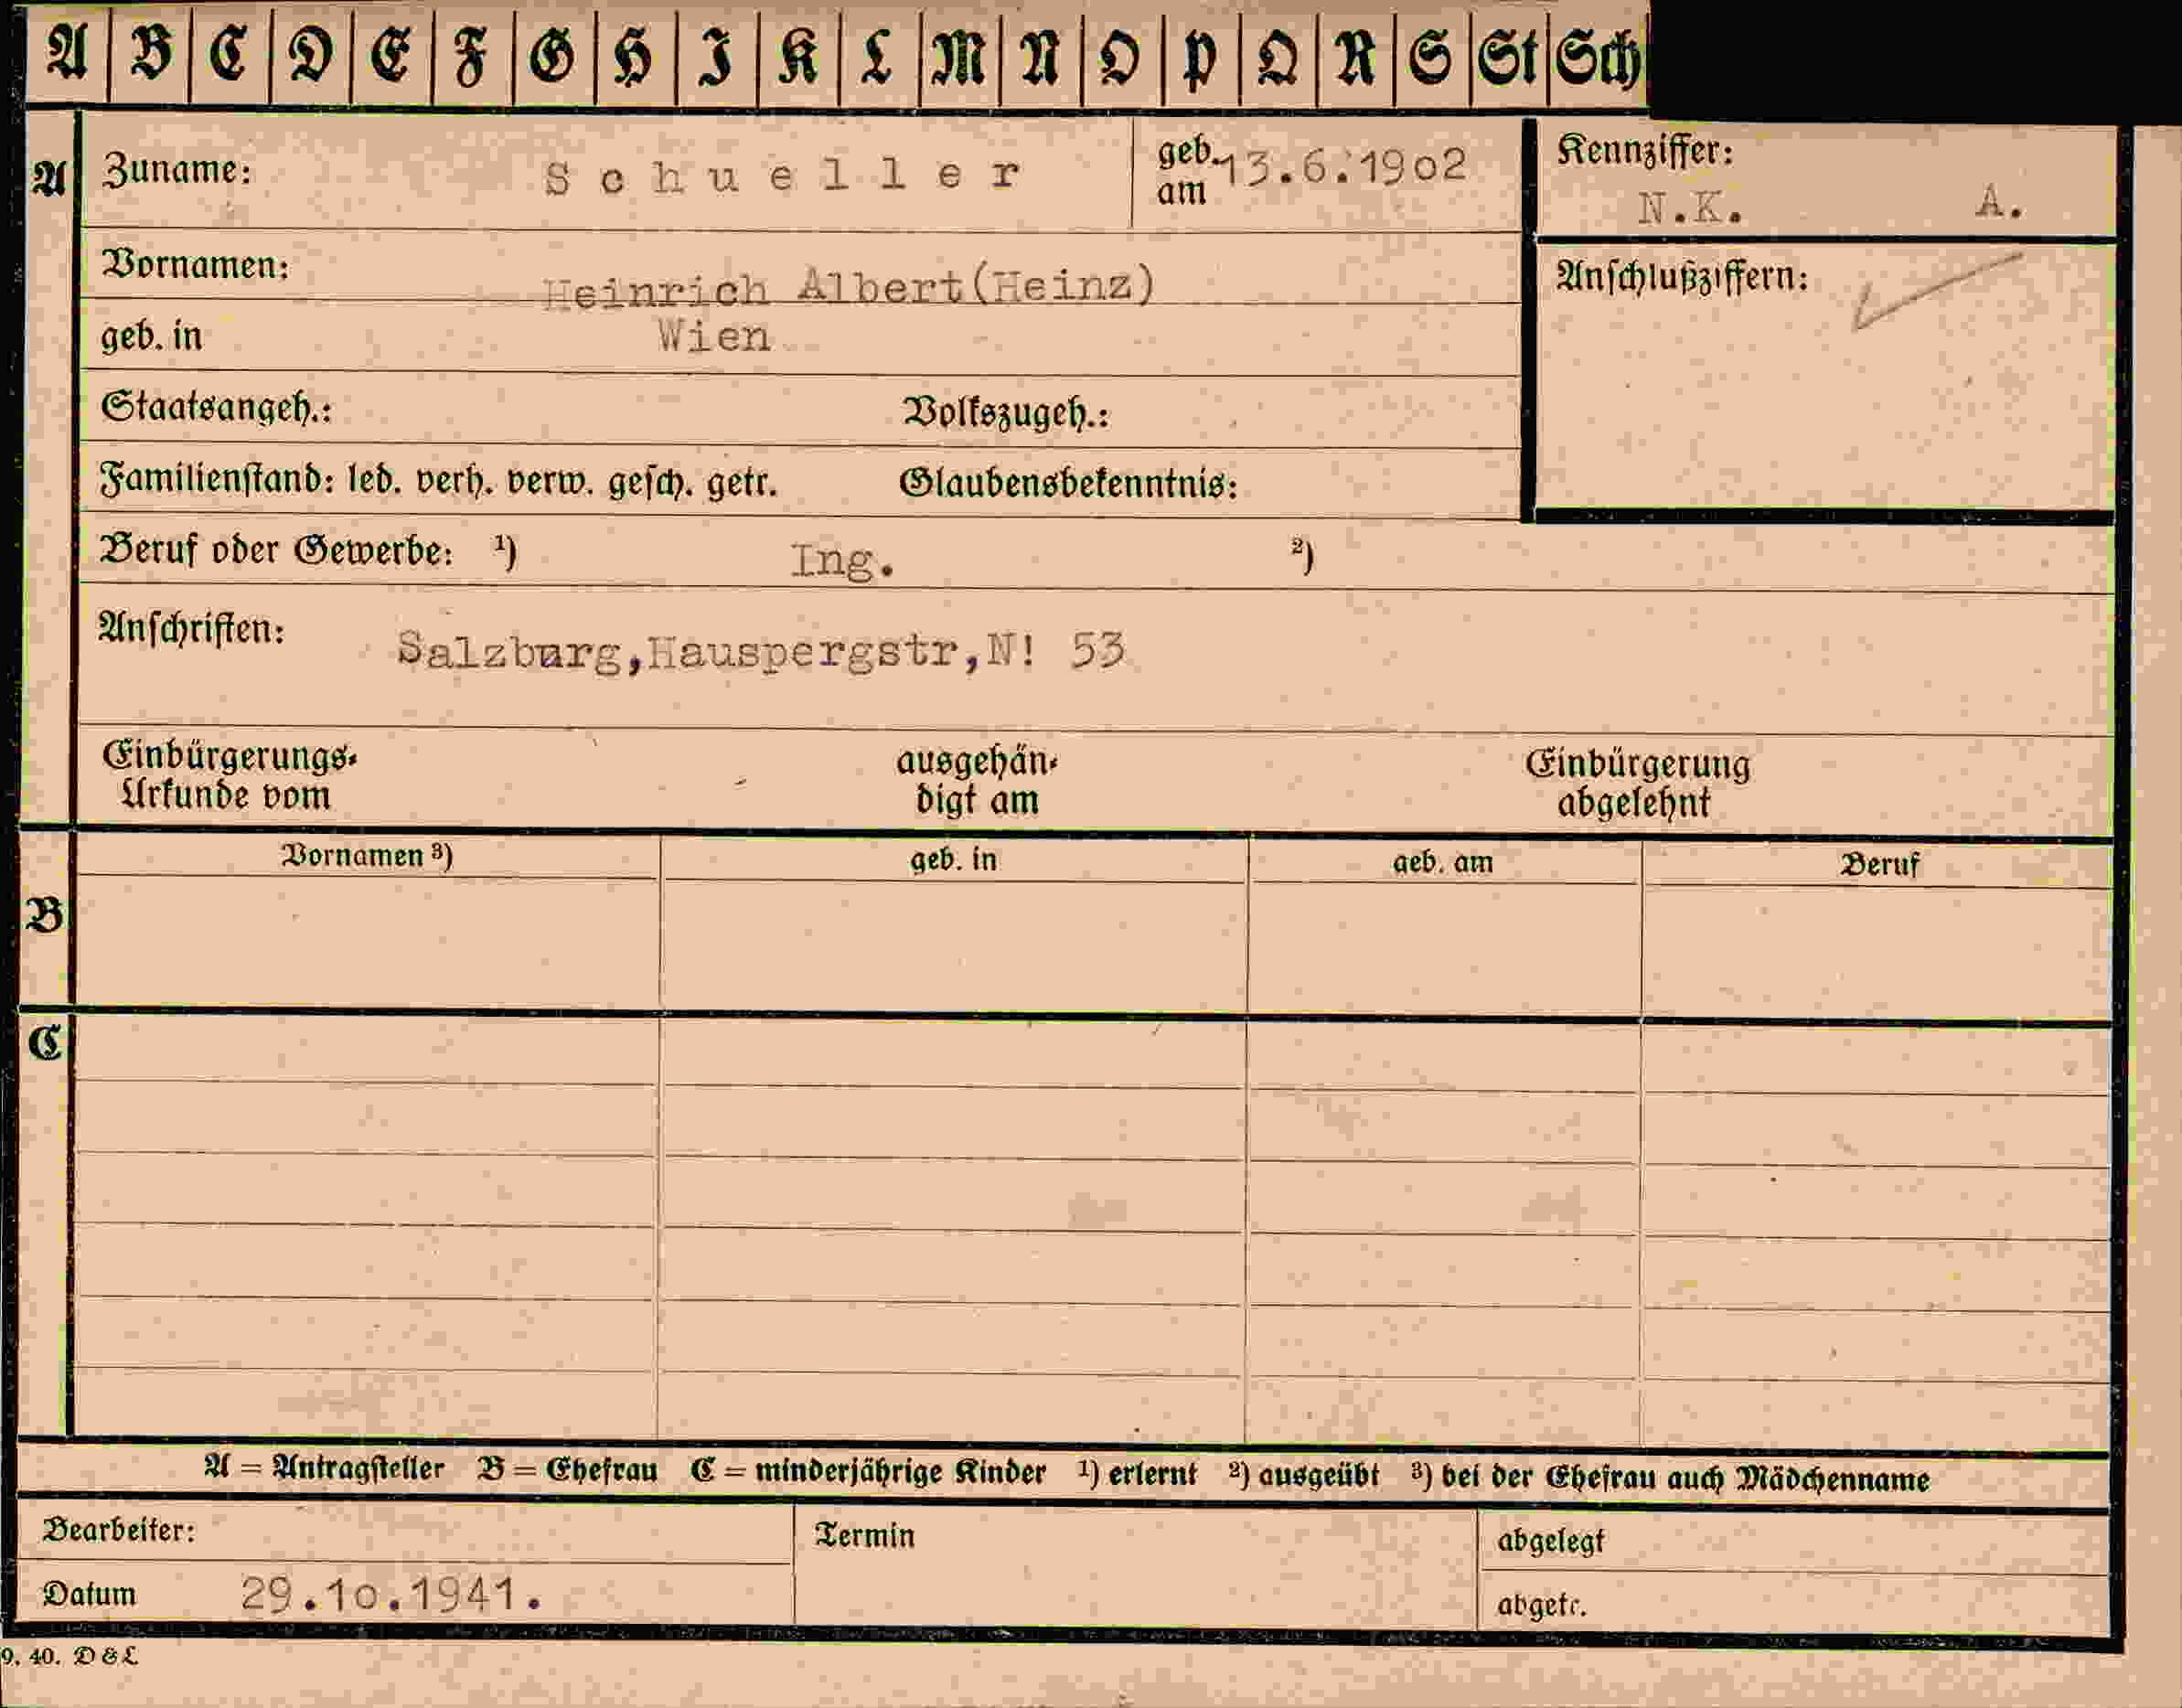 A B C D E F G H I K L M N O P Q R S St Sch
A Zuname: Schueller geb. am 13.6.1902 Kennziffer: N.K. A.
Vornamen: Heinrich Albert(Heinz) Anschlußziffern:
geb. in Wien
Staatsangeh.: Volkszugeh.:
Familienstand: led. verh. verw. gesch. getr. Glaubensbekenntnis:
Beruf oder Gewerbe: ¹) Ing. ²)
Anschriften: Salzburg,Hauspergstr,N! 53
Einbürgerungs- ausgehän- Einbürgerung
Urkunde vom digt am abgelehnt
Vornamen ³) geb. in geb. am Beruf
B
C
A = Antragsteller B = Ehefrau C = minderjährige Kinder ¹) erlernt ²) ausgeübt ³) bei der Ehefrau auch Mädchenname
Bearbeiter: Termin abgelegt
Datum 29.10.1941. abgetr.
9. 40. D & L